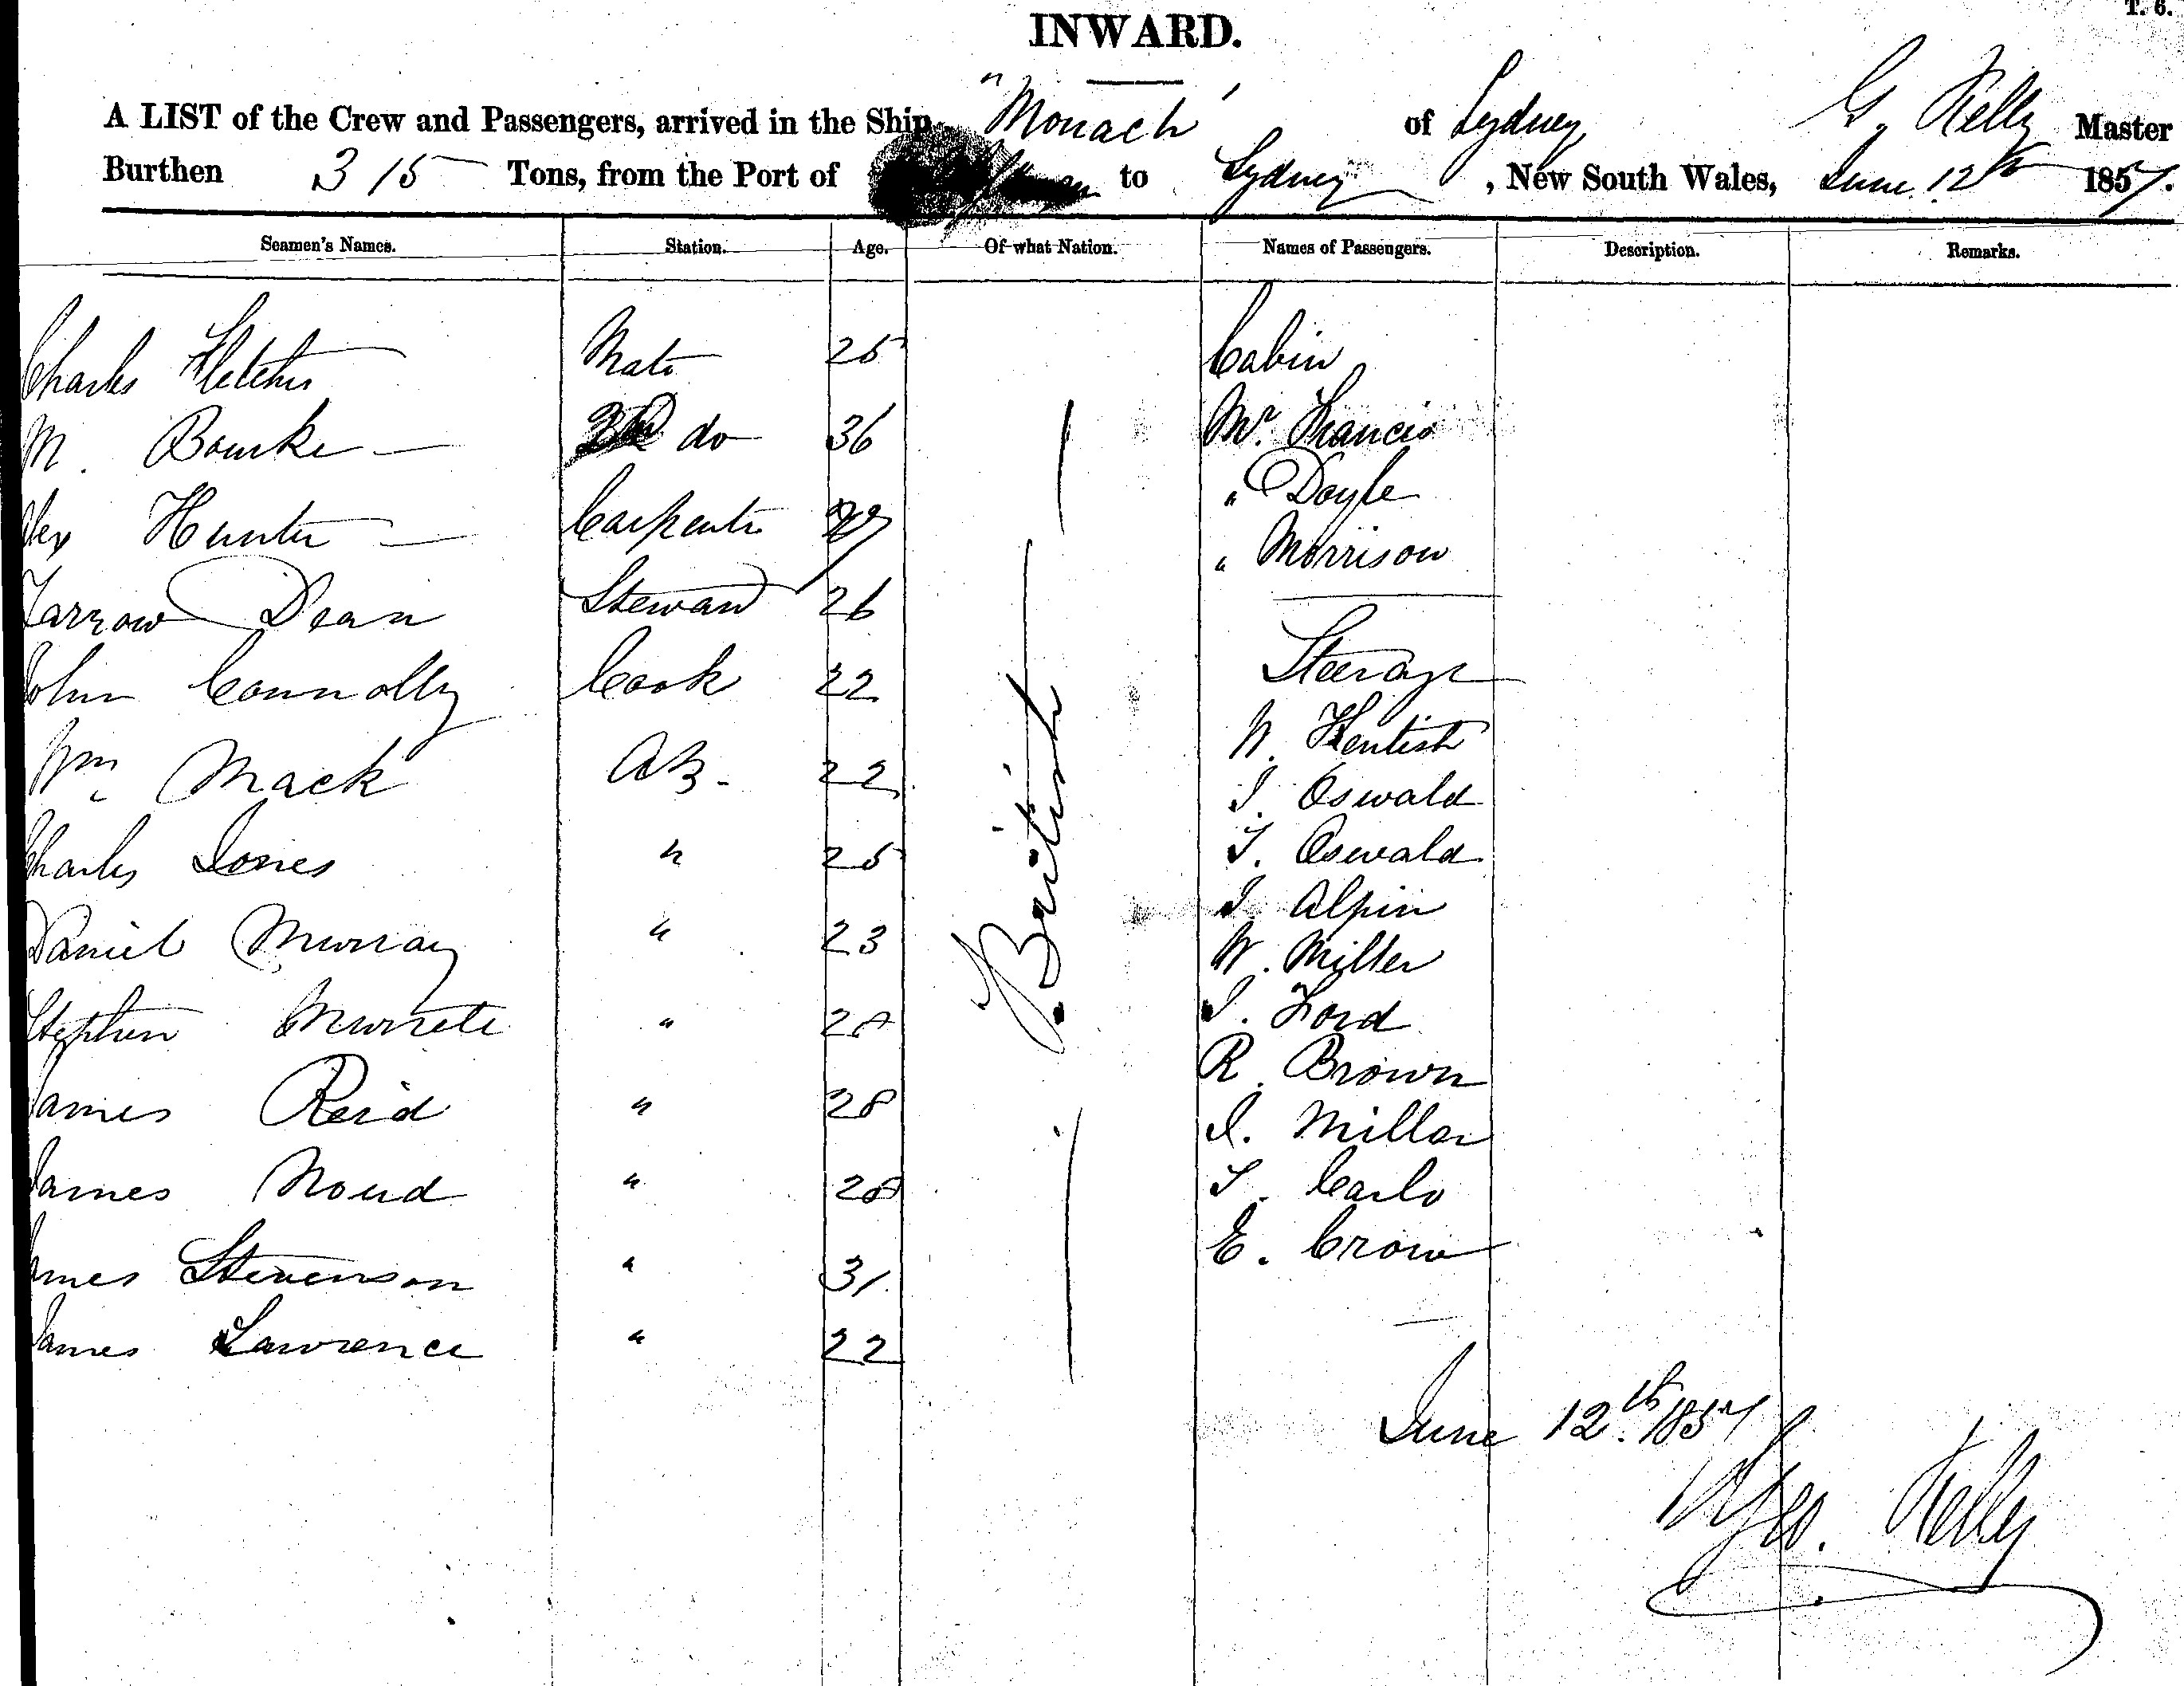 T. 6.
INWARD.
A LIST of the Crew and Passengers, arrived in the Ship "Monach" of Sydney G. Kelly Master
Burthen 315 Tons, from the Port of to Sydney, New South Wales, June 12th 1857.
Seamen's Names. Station. Age. Of what Nation. Names of Passengers. Description. Remarks.
Charles Fletcher Mate 25 Cabin
M. Bourke do 36 Mr. Francis
Alex Hunter Carpenter " Doyle
" Morrison
Yarrow Dean Steward 26
John Connolly Cook 22 Steerage
Wm Mack AB. 22 W. Kentish
J. Oswald
Charles Jones " 25 T. Oswald
J. Alpin
Daniel Murray " 23 W. Miller
Stephen " 28 J. Ford
James Reid " 28 R. Brown
J. Millar
James Noud " 28 T. Carlo
James Stevenson " 31 E. Crow
James Lawrence " 22
British
June 12th. 1857
Geo. Kelly